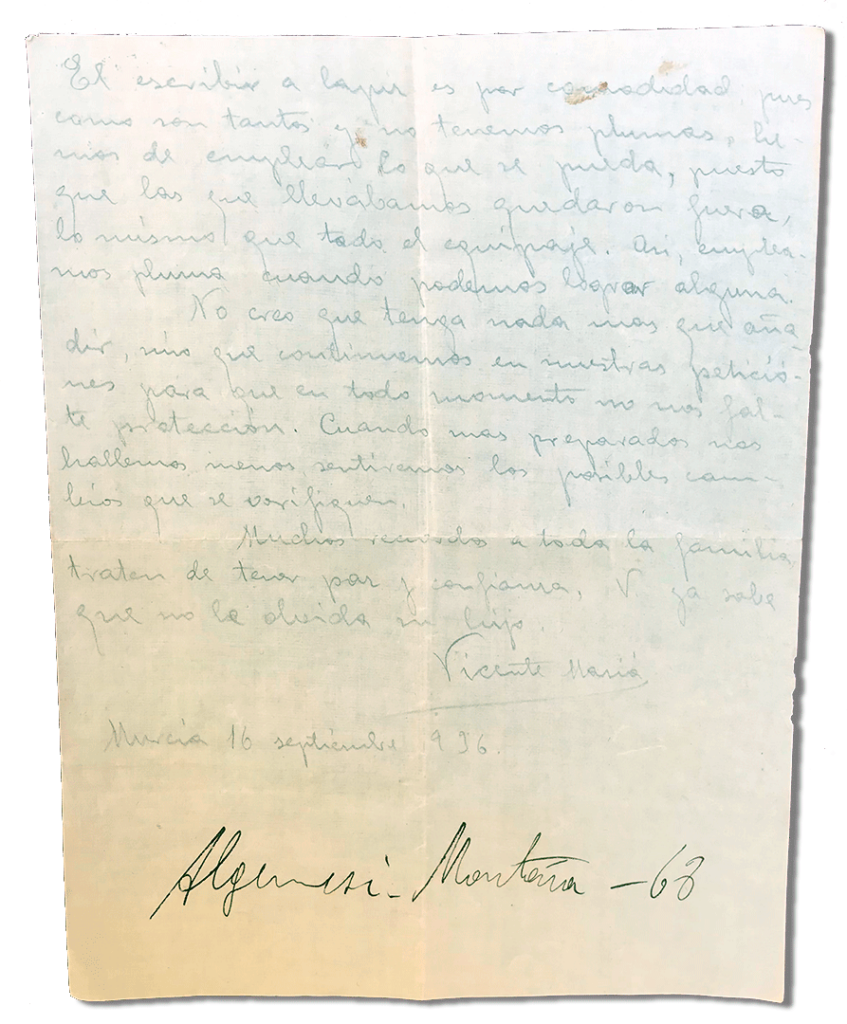 El escribir a lapiz es por comodidad, pues
como son tantos y no tenemos plumas, he-
mos de emplear lo que se pueda, puesto
que las que llevábamos quedaron fuera,
lo mismo que todo el equipaje. Asi, emplea-
mos pluma cuando podemos lograr alguna.
No creo que tenga nada mas que aña-
dir, sino que continuemos en nuestras peticio-
nes para que en todo momento no nos fal-
te protección. Cuando mas preparados nos
hallemos menos sentiremos los posibles cam-
bios que se verifiquen.
Muchos recuerdos a toda la familia,
traten de tener paz y confianza, V. ya sabe
que no le olvida su hijo.
Vicente María
Murcia 16 septiembre 936.
Algemesi - Montaña - 68